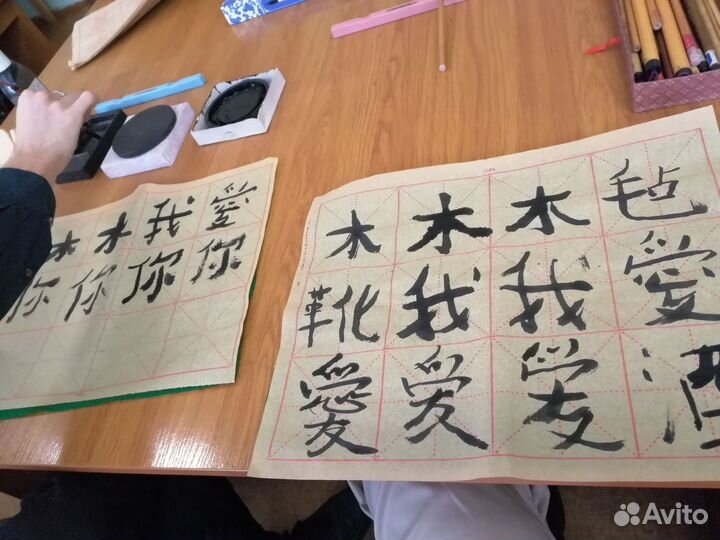 木 木 我 愛
你 你 你 你
木 木 木 毡
靴 我 我 愛
愛 爱 爱
Avito